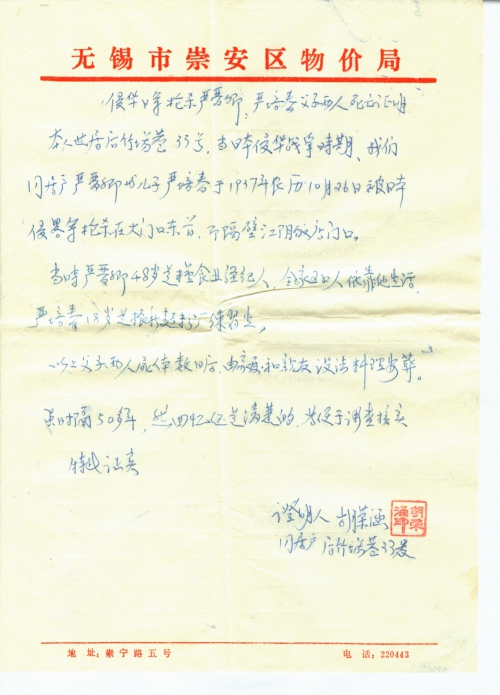 无锡市崇安区物价局
侵华日军枪杀严晋卿，严培春父子两人死亡证明
本人世居后竹场巷33号，当日本侵华战争时期、我们
同居户严晋卿也儿子严培春于1937年农历10月26日被日本
侵畧军枪杀在大门口东首，即隔壁江阴饭店门口。
当时严晋卿48岁是粮食业经纪人，全家五口人依靠他生活，
严培春18岁是 练習生。
以上父子两人屍体数日后，由 和亲友设法料理安葬。
虽时隔50多年，然回忆还是清楚的，为便于调查核实
特此证实
證明人 胡荣涵
同居户 后竹场巷33号
地 址：崇宁路五号
电 话：220443